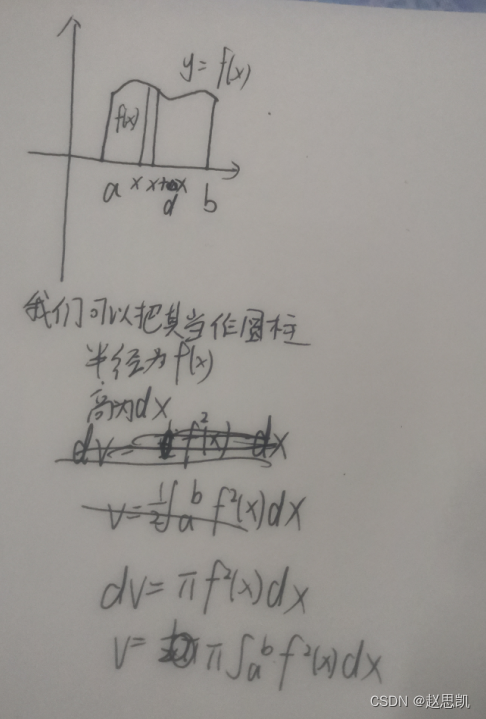 y = f(x)
f(x)
a x x+dx b
我们可以把其当作圆柱
半径为f(x)
高为dx
dv= f²(x) dx
v=½∫ₐᵇ f²(x)dx
dv=πf²(x)dx
v= π∫ₐᵇ f²(x)dx
CSDN @赵思凯